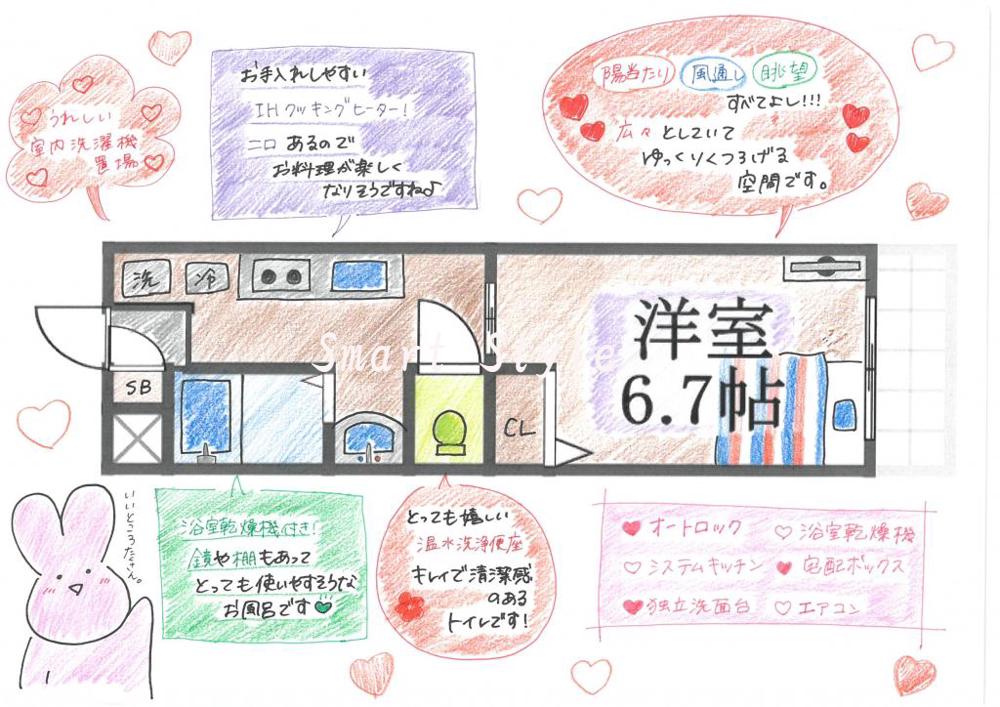 うれしい
室内洗濯機
置場
お手入れしやすい
IHクッキングヒーター!
二口あるので
お料理が楽しく
なりそうですね♪
陽当たり 風通し 眺望
すべてよし!!!
広々としていて
ゆっくりくつろげる
空間です。
洗 冷
SB
CL
洋室
6.7帖
Smart Style
いいところたくさん。
浴室乾燥機付き!
鏡や棚もあって
とっても使いやすそうな
お風呂です
とっても嬉しい
温水洗浄便座
キレイで清潔感
のある
トイレです!
オートロック
浴室乾燥機
システムキッチン
宅配ボックス
独立洗面台
エアコン